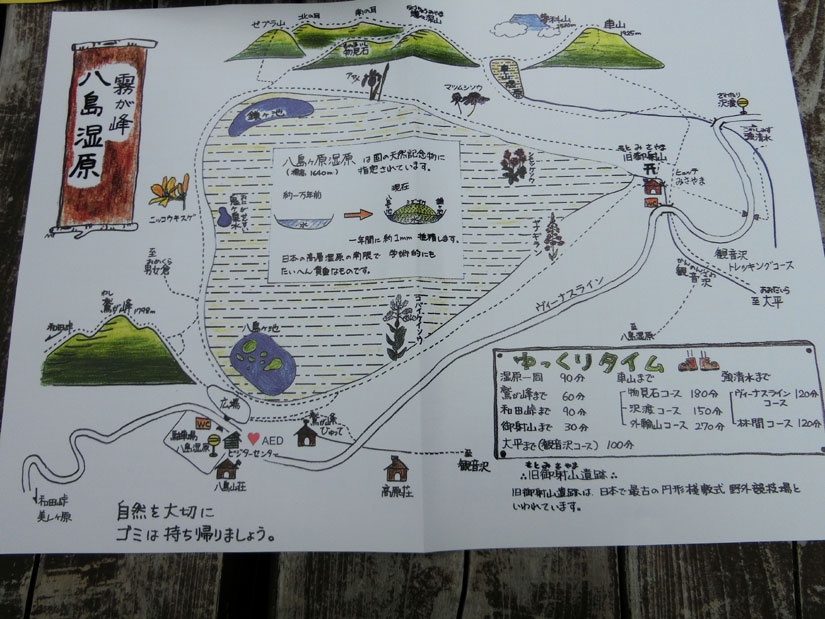 霧が峰
八島湿原
ゼブラ山
北の耳
南の耳
物見石
蝶々深山
車山湿原
蓼科山
2530m
車山
1925m
さわたり
沢渡
こわしみず
強清水
アヤメ
マツムシソウ
鎌ヶ池
もとみさやま
旧御射山
ヒュッテ
みさやま
WC
八島ヶ原湿原 は国の天然記念物に
(標高 1640m) 指定されています。
約一万年前
現在
水
一年間に約1mm 堆積します。
日本の高層湿原の南限で 学術的にも
たいへん貴重なものです。
シモツケソウ
ヤナギラン
コバイケイソウ
ニッコウキスゲ
鬼ヶ泉水
至
おめくら
男女倉
わし
鷲が峰 1798m
和田峠
八島ヶ池
広場
ヴィーナスライン
観音沢
トレッキングコース
かんのんざわ
観音沢
おおだいら
至大平
至
八島湿原
WC
駐車場
八島湿原
AED
ビジターセンター
八島山荘
鷲が峰
ひゅって
高原荘
至
観音沢
和田峠
美しヶ原
ゆっくりタイム
湿原一周 90分
鷲が峰まで 60分
和田峠まで 90分
御射山まで 30分
大平まで(観音沢コース) 100分
車山まで
物見石コース 180分
沢渡コース 150分
外輪山コース 270分
強清水まで
ヴィーナスライン 120分
コース
林間コース 120分
もとみさやま
∴旧御射山遺跡∴
旧御射山遺跡は、日本で最古の円形桟敷式 野外競技場と
いわれています。
自然を大切に
ゴミは持ち帰りましょう。